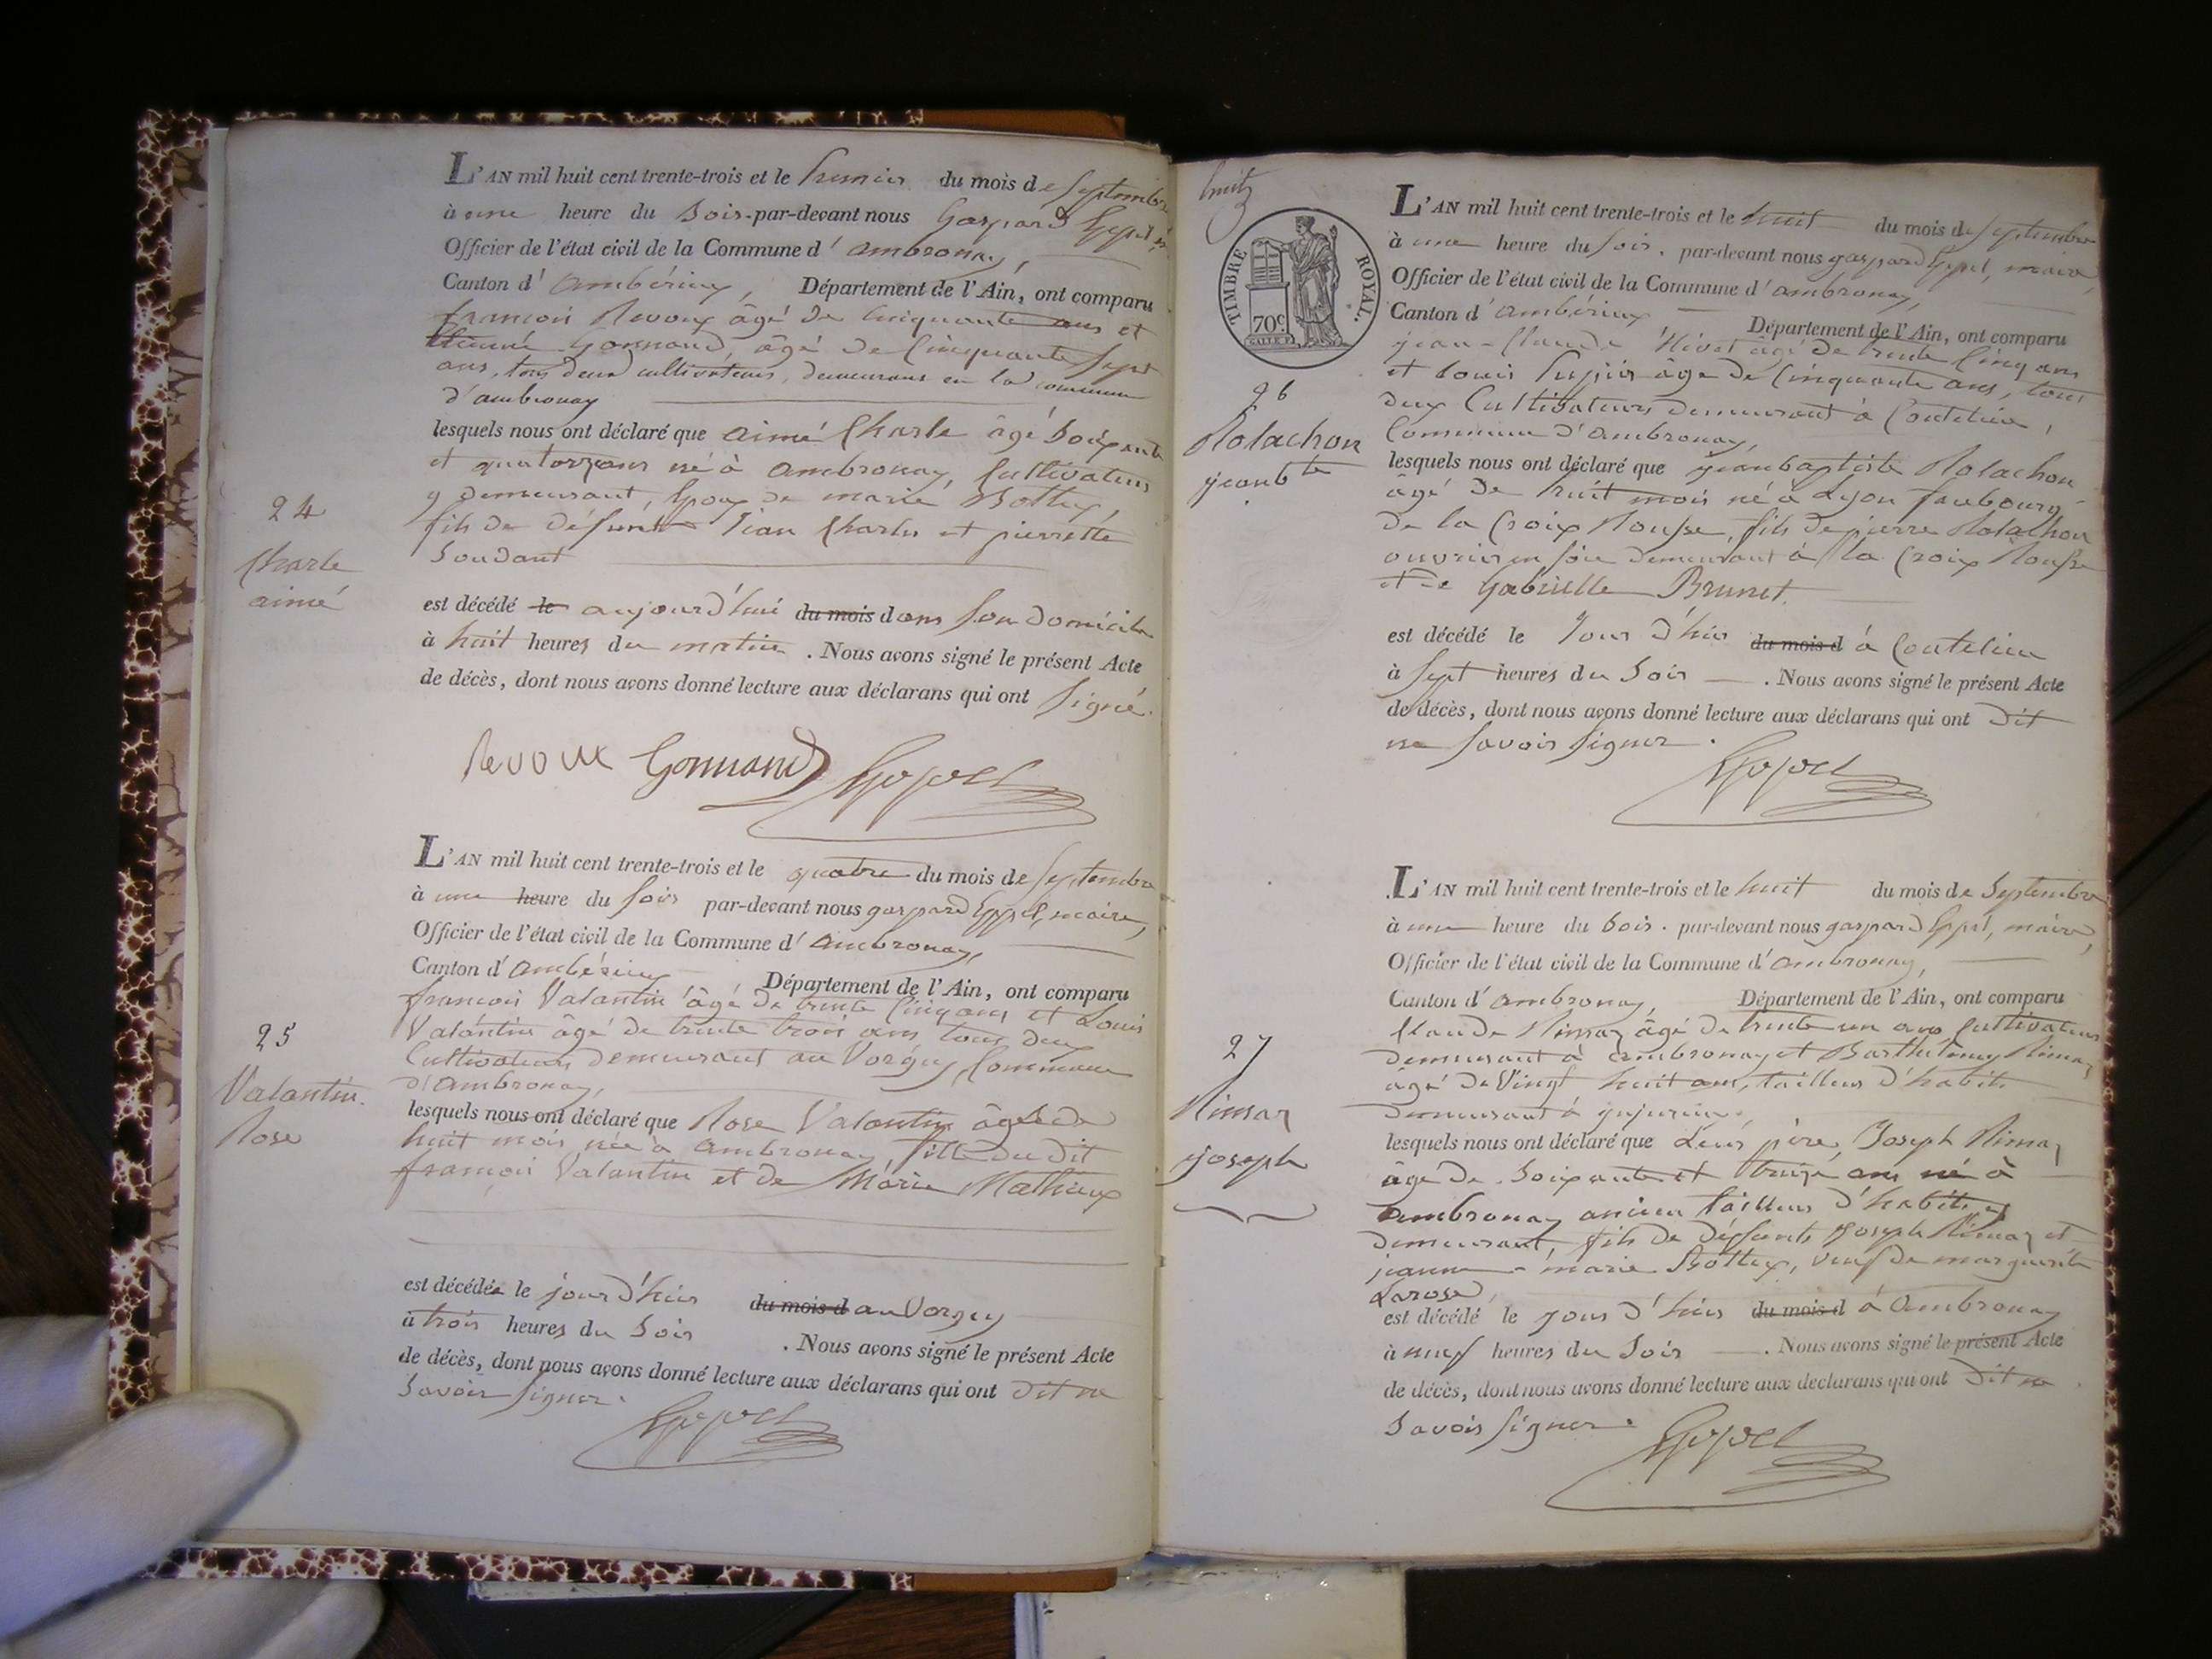 L'AN mil huit cent trente-trois et le premier du mois de septembre
à une heure du soir par-devant nous Gaspard Eppel,
Officier de l'état civil de la Commune d'ambronay,
Canton d'ambérieux, Département de l'Ain, ont comparu
françois Revoux âgé de cinquante ans et
Gonnand âgé de cinquante sept
ans, tous deux cultivateurs, demeurans en la commune
d'ambronay
lesquels nous ont déclaré que aimé Charle âgé soixante
et quatorze ans né à ambronay, Cultivateur
y demeurant, Epoux de marie Bottex,
fils de défunts Jean Charles et pierrette
Soudant
24
Charle
aimé
est décédé le aujourd'hui du mois dans son domicile
à huit heures du matin . Nous avons signé le présent Acte
de décès, dont nous avons donné lecture aux déclarans qui ont signé.
Revoux Gonnand Eppel
L'AN mil huit cent trente-trois et le quatre du mois de septembre
à une heure du soir par-devant nous gaspard Eppel, maire,
Officier de l'état civil de la Commune d'ambronay,
Canton d'ambérieux Département de l'Ain, ont comparu
françois Valantin âgé de trente cinq ans et Louis
Valantin âgé de trente trois ans, tous deux
Cultivateurs demeurant au Vorgey, Commune
d'ambronay,
25
Valantin
Rose
lesquels nous ont déclaré que Rose Valantin âgée de
huit mois née à ambronay, fille du dit
françois Valantin et de Marie Mathieux
est décédée le jour d'hier du mois d au Vorgey
à trois heures du soir . Nous avons signé le présent Acte
de décès, dont nous avons donné lecture aux déclarans qui ont dit ne
savoir signer.
Eppel
huit
TIMBRE ROYAL.
70c
L'AN mil huit cent trente-trois et le huit du mois de septembre
à une heure du soir. par-devant nous gaspard Eppel, maire,
Officier de l'état civil de la Commune d'ambronay,
Canton d'ambérieux Département de l'Ain, ont comparu
jean-Claude Nivet âgé de trente cinq ans
et Louis âgé de cinquante ans, tous
deux Cultivateurs demeurant à Coutelieu,
Commune d'ambronay,
26
Rolachon
jean bte
lesquels nous ont déclaré que jean baptiste Rolachon
âgé de huit mois né à Lyon faubourg
de la Croix Rousse, fils de pierre Rolachon
ouvrier en soie demeurant à la Croix Rousse
et de Gabrielle Brunet.
est décédé le jour d'hier du mois d à Coutelieu
à sept heures du soir . Nous avons signé le présent Acte
de décès, dont nous avons donné lecture aux déclarans qui ont dit
ne savoir signer.
Eppel
L'AN mil huit cent trente-trois et le huit du mois de Septembre
à une heure du soir. par-devant nous gaspard Eppel, maire,
Officier de l'état civil de la Commune d'ambronay,
Canton d'ambronay, Département de l'Ain, ont comparu
Claude Rimaz âgé de trente un ans Cultivateur
demeurant à ambronay et Barthélemy Rimaz
âgé de Vingt huit ans, tailleur d'habits
demeurant à jujurieux,
27
Rimaz
joseph
lesquels nous ont déclaré que Leur père, Joseph Rimaz
âgé de soixante et treize ans né à
ambronay ancien tailleur d'habits y
demeurant, fils de défunts Joseph Rimaz et
jeanne-marie Bottex, veuf de marguerite
Larose,
est décédé le jour d'hier du mois d à Ambronay
à neuf heures du soir . Nous avons signé le présent Acte
de décès, dont nous avons donné lecture aux déclarans qui ont dit ne
savoir signer.
Eppel